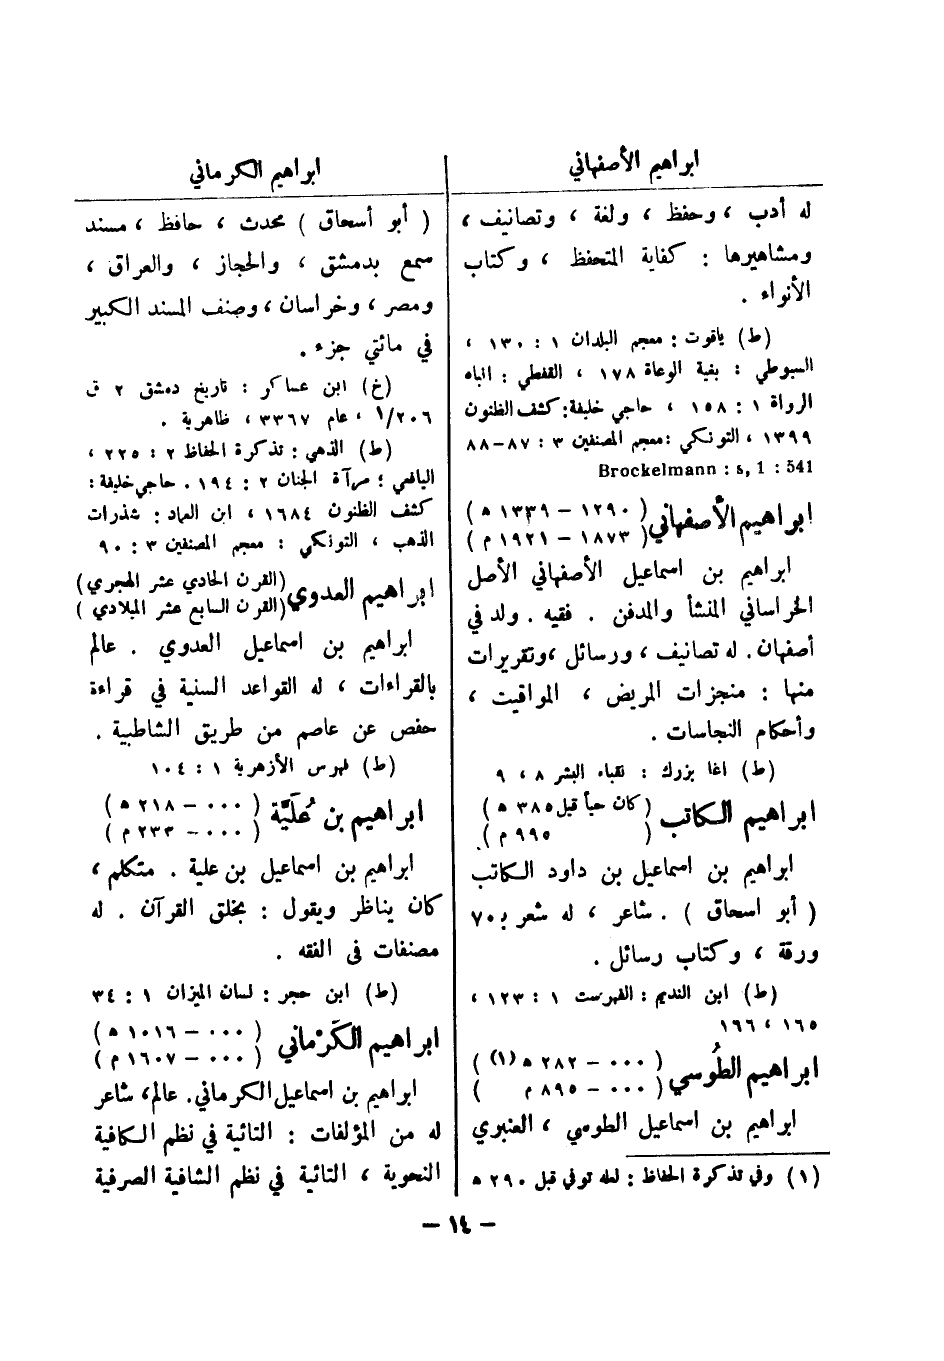 ابراهيم الأصفهاني
ابراهيم الكرماني
له أدب ، وحفظ ، ولغة ، وتصانيف ،
ومشاهيرها : كفاية المتحفظ ، وكتاب
الأنواء .
(ط) ياقوت : معجم البلدان ١ : ١٣٠ ،
السيوطي : بغية الوعاة ١٧٨ ، القفطي : انباه
الرواة ١ : ١٥٨ ، حاجي خليفة: كشف الظنون
١٣٩٩ ، التونكي : معجم المصنفين ٣ : ٨٧-٨٨
Brockelmann : s, 1 : 541
ابراهيم الأصفهاني (١٢٩٠ - ١٣٣٩ ه)
(١٨٧٣ - ١٩٢١ م)
ابراهيم بن اسماعيل الأصفهاني الأصل
الخراساني المنشأ والمدفن . فقيه . ولد في
أصفهان . له تصانيف ، ورسائل ، وتقريرات
منها : منجزات المريض ، المواقيت ،
وأحكام النجاسات .
(ط) اغا بزرك : نقباء البشر ٨ ، ٩
ابراهيم الكاتب (كان حياً قبل ٣٨٥ ه)
(٩٩٥ م)
ابراهيم بن اسماعيل بن داود الكاتب
(أبو اسحاق) . شاعر ، له شعر بـ ٧٠
ورقة ، وكتاب رسائل .
(ط) ابن النديم : الفهرست ١ : ١٢٣ ،
١٦٥ ، ١٦٦
ابراهيم الطُوسي (٠٠٠ - ٢٨٢ ه (١))
(٠٠٠ - ٨٩٥ م)
ابراهيم بن اسماعيل الطوسي ، العنبري
(١) وفي تذكرة الحفاظ : لعله توفي قبل ٢٩٠ ه
(أبو أسحاق) محدث ، حافظ ، مسند
سمع بدمشق ، والحجاز ، والعراق ،
ومصر ، وخراسان ، وصنف المسند الكبير
في مائتي جزء .
(خ) ابن عساكر : تاريخ دمشق ٢ ق
١/٢٠٦ ، عام ٣٣٦٧ ، ظاهرية .
(ط) الذهبي : تذكرة الحفاظ ٢ : ٢٢٥ ،
اليافعي : مرآة الجنان ٢ : ١٩٤ . حاجي خليفة :
كشف الظنون ١٦٨٤ ، ابن العماد : شذرات
الذهب ، التونكي : معجم المصنفين ٣ : ٩٠
ابراهيم العدوي (القرن الحادي عشر الهجري)
(القرن السابع عشر الميلادي)
ابراهيم بن اسماعيل العدوي . عالم
بالقراءات ، له القواعد السنية في قراءة
حفص عن عاصم من طريق الشاطبية .
(ط) فهرس الأزهرية ١ : ١٠٤
ابراهيم بن عُلَيَّة (٠٠٠ - ٢١٨ ه)
(٠٠٠ - ٢٣٣ م)
ابراهيم بن اسماعيل بن علية . متكلم ،
كان يناظر ويقول : بخلق القرآن . له
مصنفات في الفقه .
(ط) ابن حجر : لسان الميزان ١ : ٣٤
ابراهيم الكَرْماني (٠٠٠ - ١٠١٦ ه)
(٠٠٠ - ١٦٠٧ م)
ابراهيم بن اسماعيل الكرماني . عالم ، شاعر
له من المؤلفات : التائية في نظم الكافية
النحوية ، التائية في نظم الشافية الصرفية
- ١٤ -